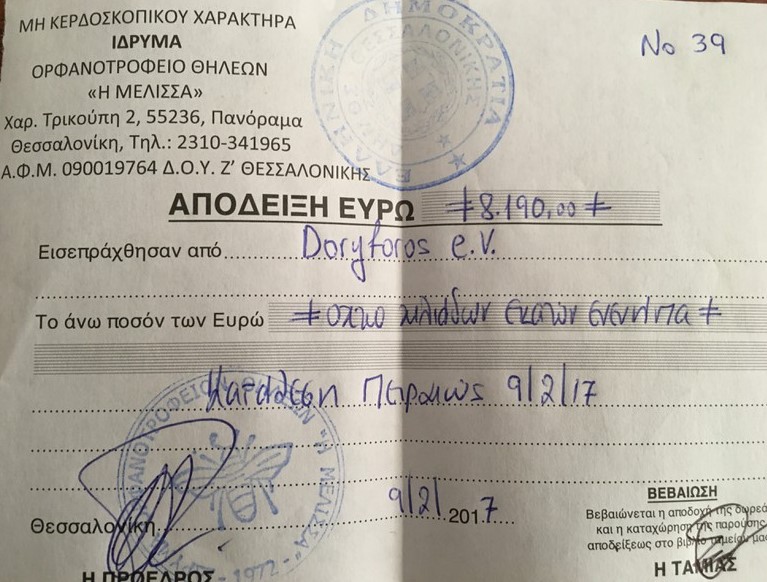 ΜΗ ΚΕΡΔΟΣΚΟΠΙΚΟΥ ΧΑΡΑΚΤΗΡΑ
ΙΔΡΥΜΑ
ΟΡΦΑΝΟΤΡΟΦΕΙΟ ΘΗΛΕΩΝ
«Η ΜΕΛΙΣΣΑ»
Χαρ. Τρικούπη 2, 55236, Πανόραμα
Θεσσαλονίκη, Τηλ.: 2310-341965
Α.Φ.Μ. 090019764 Δ.Ο.Υ. Ζ’ ΘΕΣΣΑΛΟΝΙΚΗΣ
ΕΛΛΗΝΙΚΗ ΔΗΜΟΚΡΑΤΙΑ
ΘΕΣΣΑΛΟΝΙΚΗΣ
No 39
ΑΠΟΔΕΙΞΗ ΕΥΡΩ ≠ 8.190,00 ≠
Εισεπράχθησαν από Doryforos e.V.
Το άνω ποσόν των Ευρώ ≠ οχτώ χιλιάδων εκατόν ενενήντα ≠
Κατάθεση Πειραιώς 9/2/17
ΟΡΦΑΝΟΤΡΟΦΕΙΟΝ "Η ΜΕΛΙΣΣΑ" - 1972 -
Θεσσαλονίκη 9/2/2017
ΒΕΒΑΙΩΣΗ
Βεβαιώνεται η αποδοχή της δωρεά
και η καταχώρηση της παρούσης
αποδείξεως στο βιβλίο ταμείου μας
Η ΠΡΟΕΔΡΟΣ
Η ΤΑΜΙΑΣ